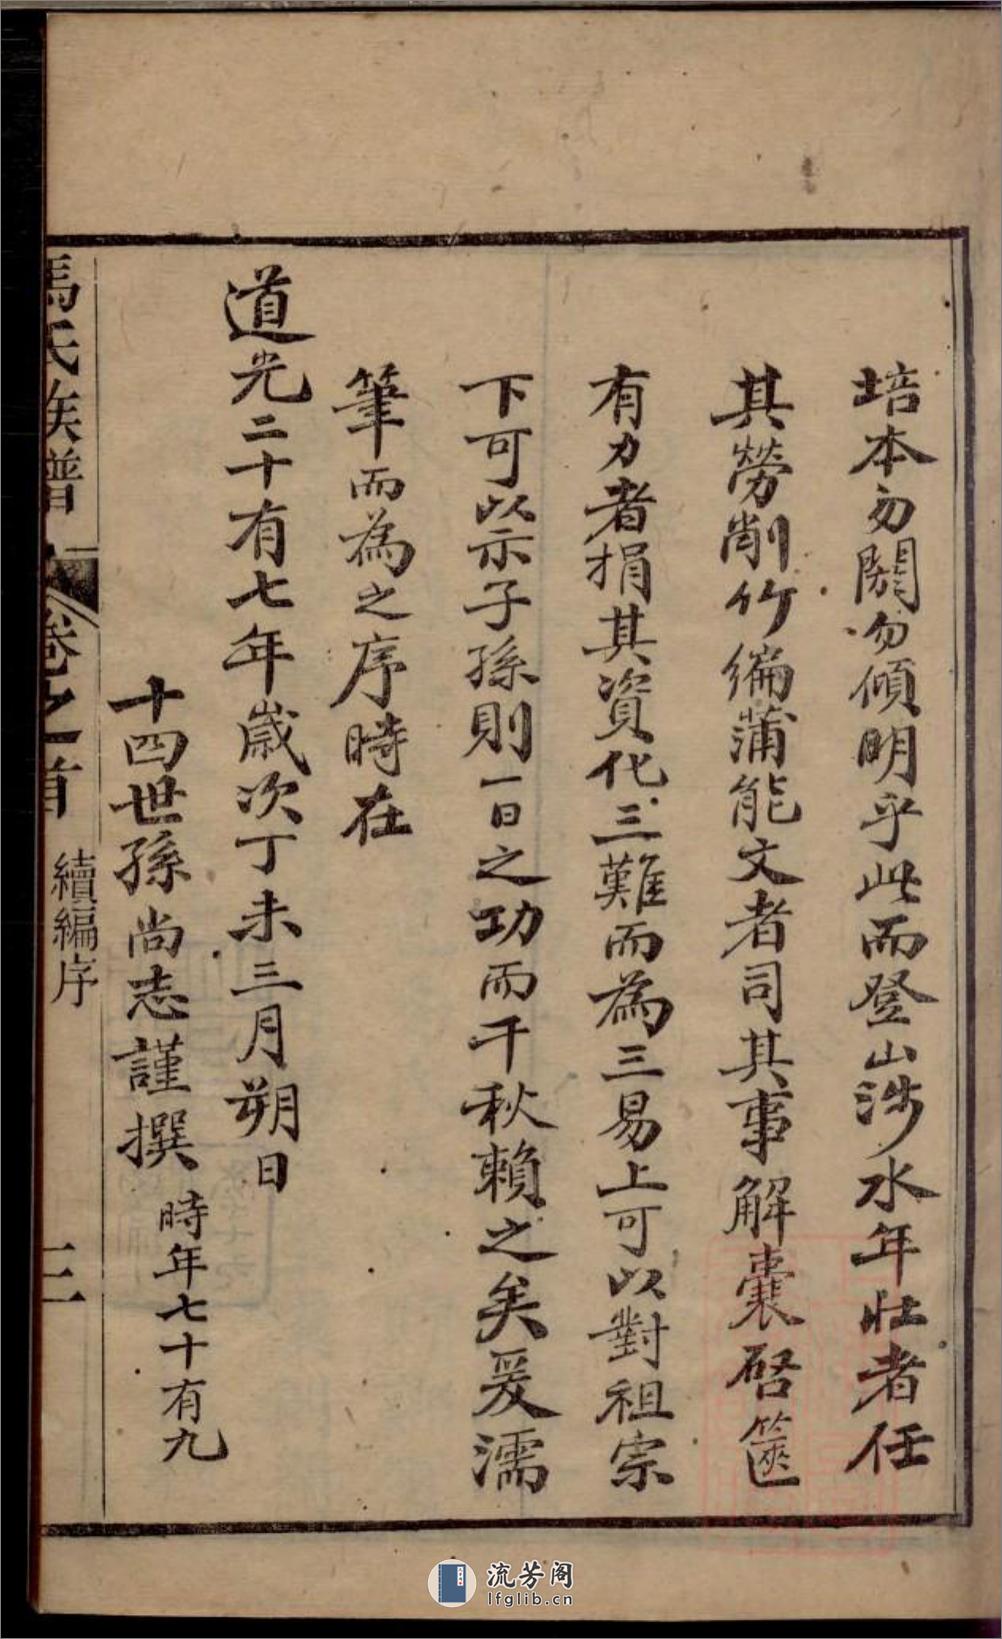 培本勿關勿傾明乎此而登山涉水年壯者任
其勞削竹編蒲能文者司其事解囊啓篋
有力者捐其資化三難而為三易上可以對祖宗
下可以示子孫則一日之功而千秋賴之矣爰濡
筆而為之序時在
道光二十有七年歲次丁未三月朔日
十四世孫尚志謹撰 時年七十有九
馮氏族譜 卷之首 續編序 三
流芳阁
lfglib.cn